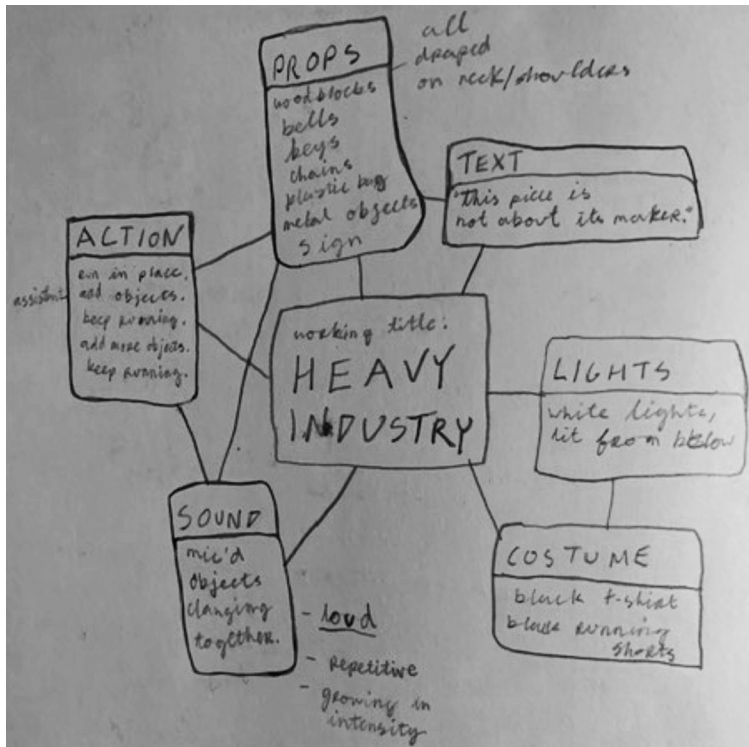 PROPS
woodblocks
bells
keys
chains
plastic bag
metal objects
sign
all
draped
on neck/shoulders
TEXT
"this piece is
not about its maker."
ACTION
run in place.
add objects.
keep running.
add more objects.
keep running.
assistant
working title:
HEAVY
INDUSTRY
LIGHTS
white lights,
lit from below
SOUND
mic'd
objects
clanging
together.
- loud
- repetitive
- growing in
intensity
COSTUME
black t-shirt
black running
shorts